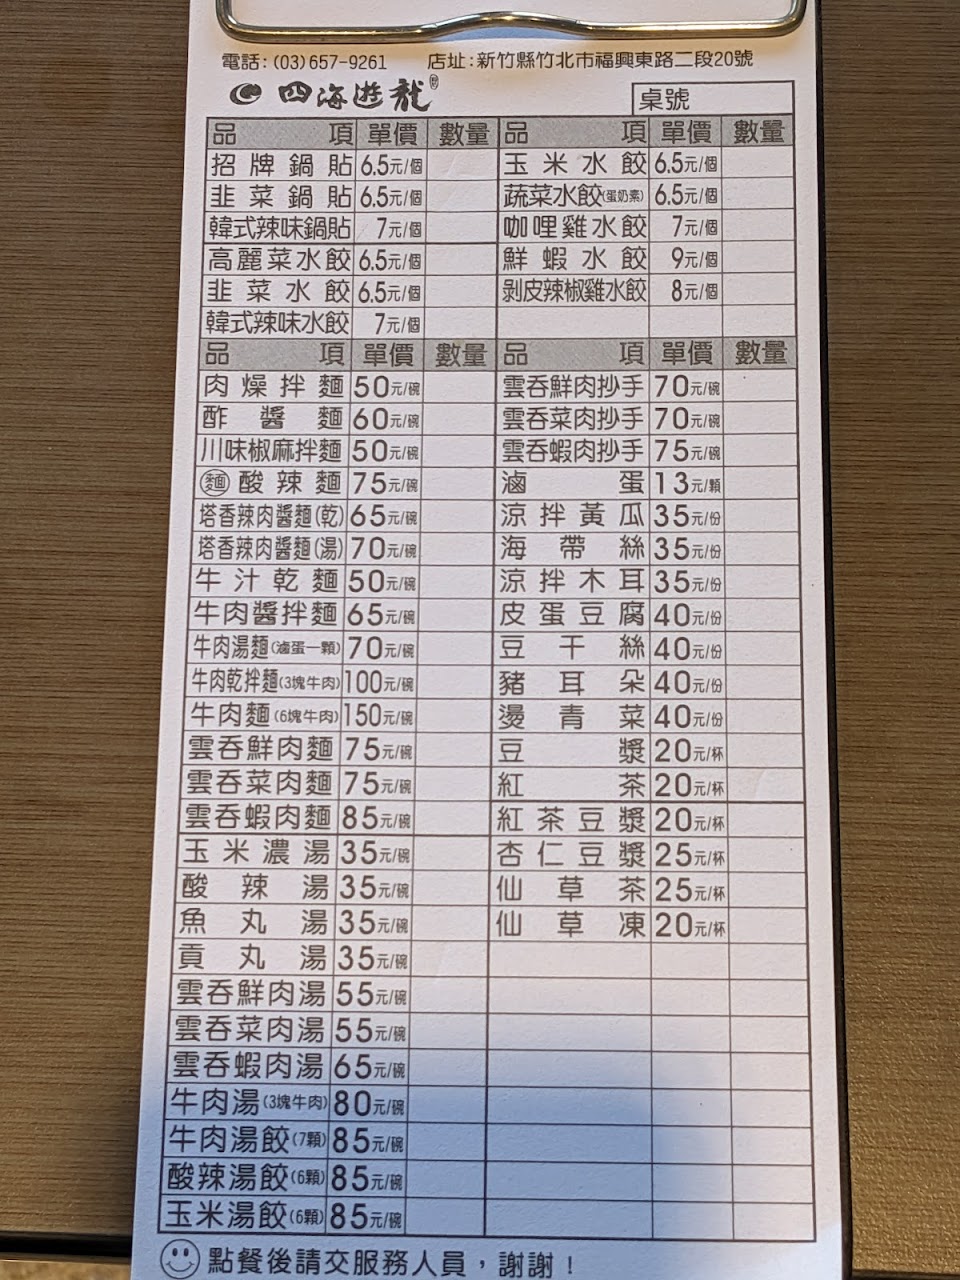 電話:(03)657-9261 店址:新竹縣竹北市福興東路二段20號
四海遊龍
桌號
品項 單價 數量 品項 單價 數量
招牌鍋貼 6.5元/個 玉米水餃 6.5元/個
韭菜鍋貼 6.5元/個 蔬菜水餃(蛋奶素) 6.5元/個
韓式辣味鍋貼 7元/個 咖哩雞水餃 7元/個
高麗菜水餃 6.5元/個 鮮蝦水餃 9元/個
韭菜水餃 6.5元/個 剝皮辣椒雞水餃 8元/個
韓式辣味水餃 7元/個
品項 單價 數量 品項 單價 數量
肉燥拌麵 50元/碗 雲吞鮮肉抄手 70元/碗
酢醬麵 60元/碗 雲吞菜肉抄手 70元/碗
川味椒麻拌麵 50元/碗 雲吞蝦肉抄手 75元/碗
麵 酸辣麵 75元/碗 滷蛋 13元/顆
塔香辣肉醬麵(乾) 65元/碗 涼拌黃瓜 35元/份
塔香辣肉醬麵(湯) 70元/碗 海帶絲 35元/份
牛汁乾麵 50元/碗 涼拌木耳 35元/份
牛肉醬拌麵 65元/碗 皮蛋豆腐 40元/份
牛肉湯麵(滷蛋一顆) 70元/碗 豆干絲 40元/份
牛肉乾拌麵(3塊牛肉) 100元/碗 豬耳朵 40元/份
牛肉麵(6塊牛肉) 150元/碗 燙青菜 40元/份
雲吞鮮肉麵 75元/碗 豆漿 20元/杯
雲吞菜肉麵 75元/碗 紅茶 20元/杯
雲吞蝦肉麵 85元/碗 紅茶豆漿 20元/杯
玉米濃湯 35元/碗 杏仁豆漿 25元/杯
酸辣湯 35元/碗 仙草茶 25元/杯
魚丸湯 35元/碗 仙草凍 20元/杯
貢丸湯 35元/碗
雲吞鮮肉湯 55元/碗
雲吞菜肉湯 55元/碗
雲吞蝦肉湯 65元/碗
牛肉湯(3塊牛肉) 80元/碗
牛肉湯餃(7顆) 85元/碗
酸辣湯餃(6顆) 85元/碗
玉米湯餃(6顆) 85元/碗
點餐後請交服務人員，謝謝！